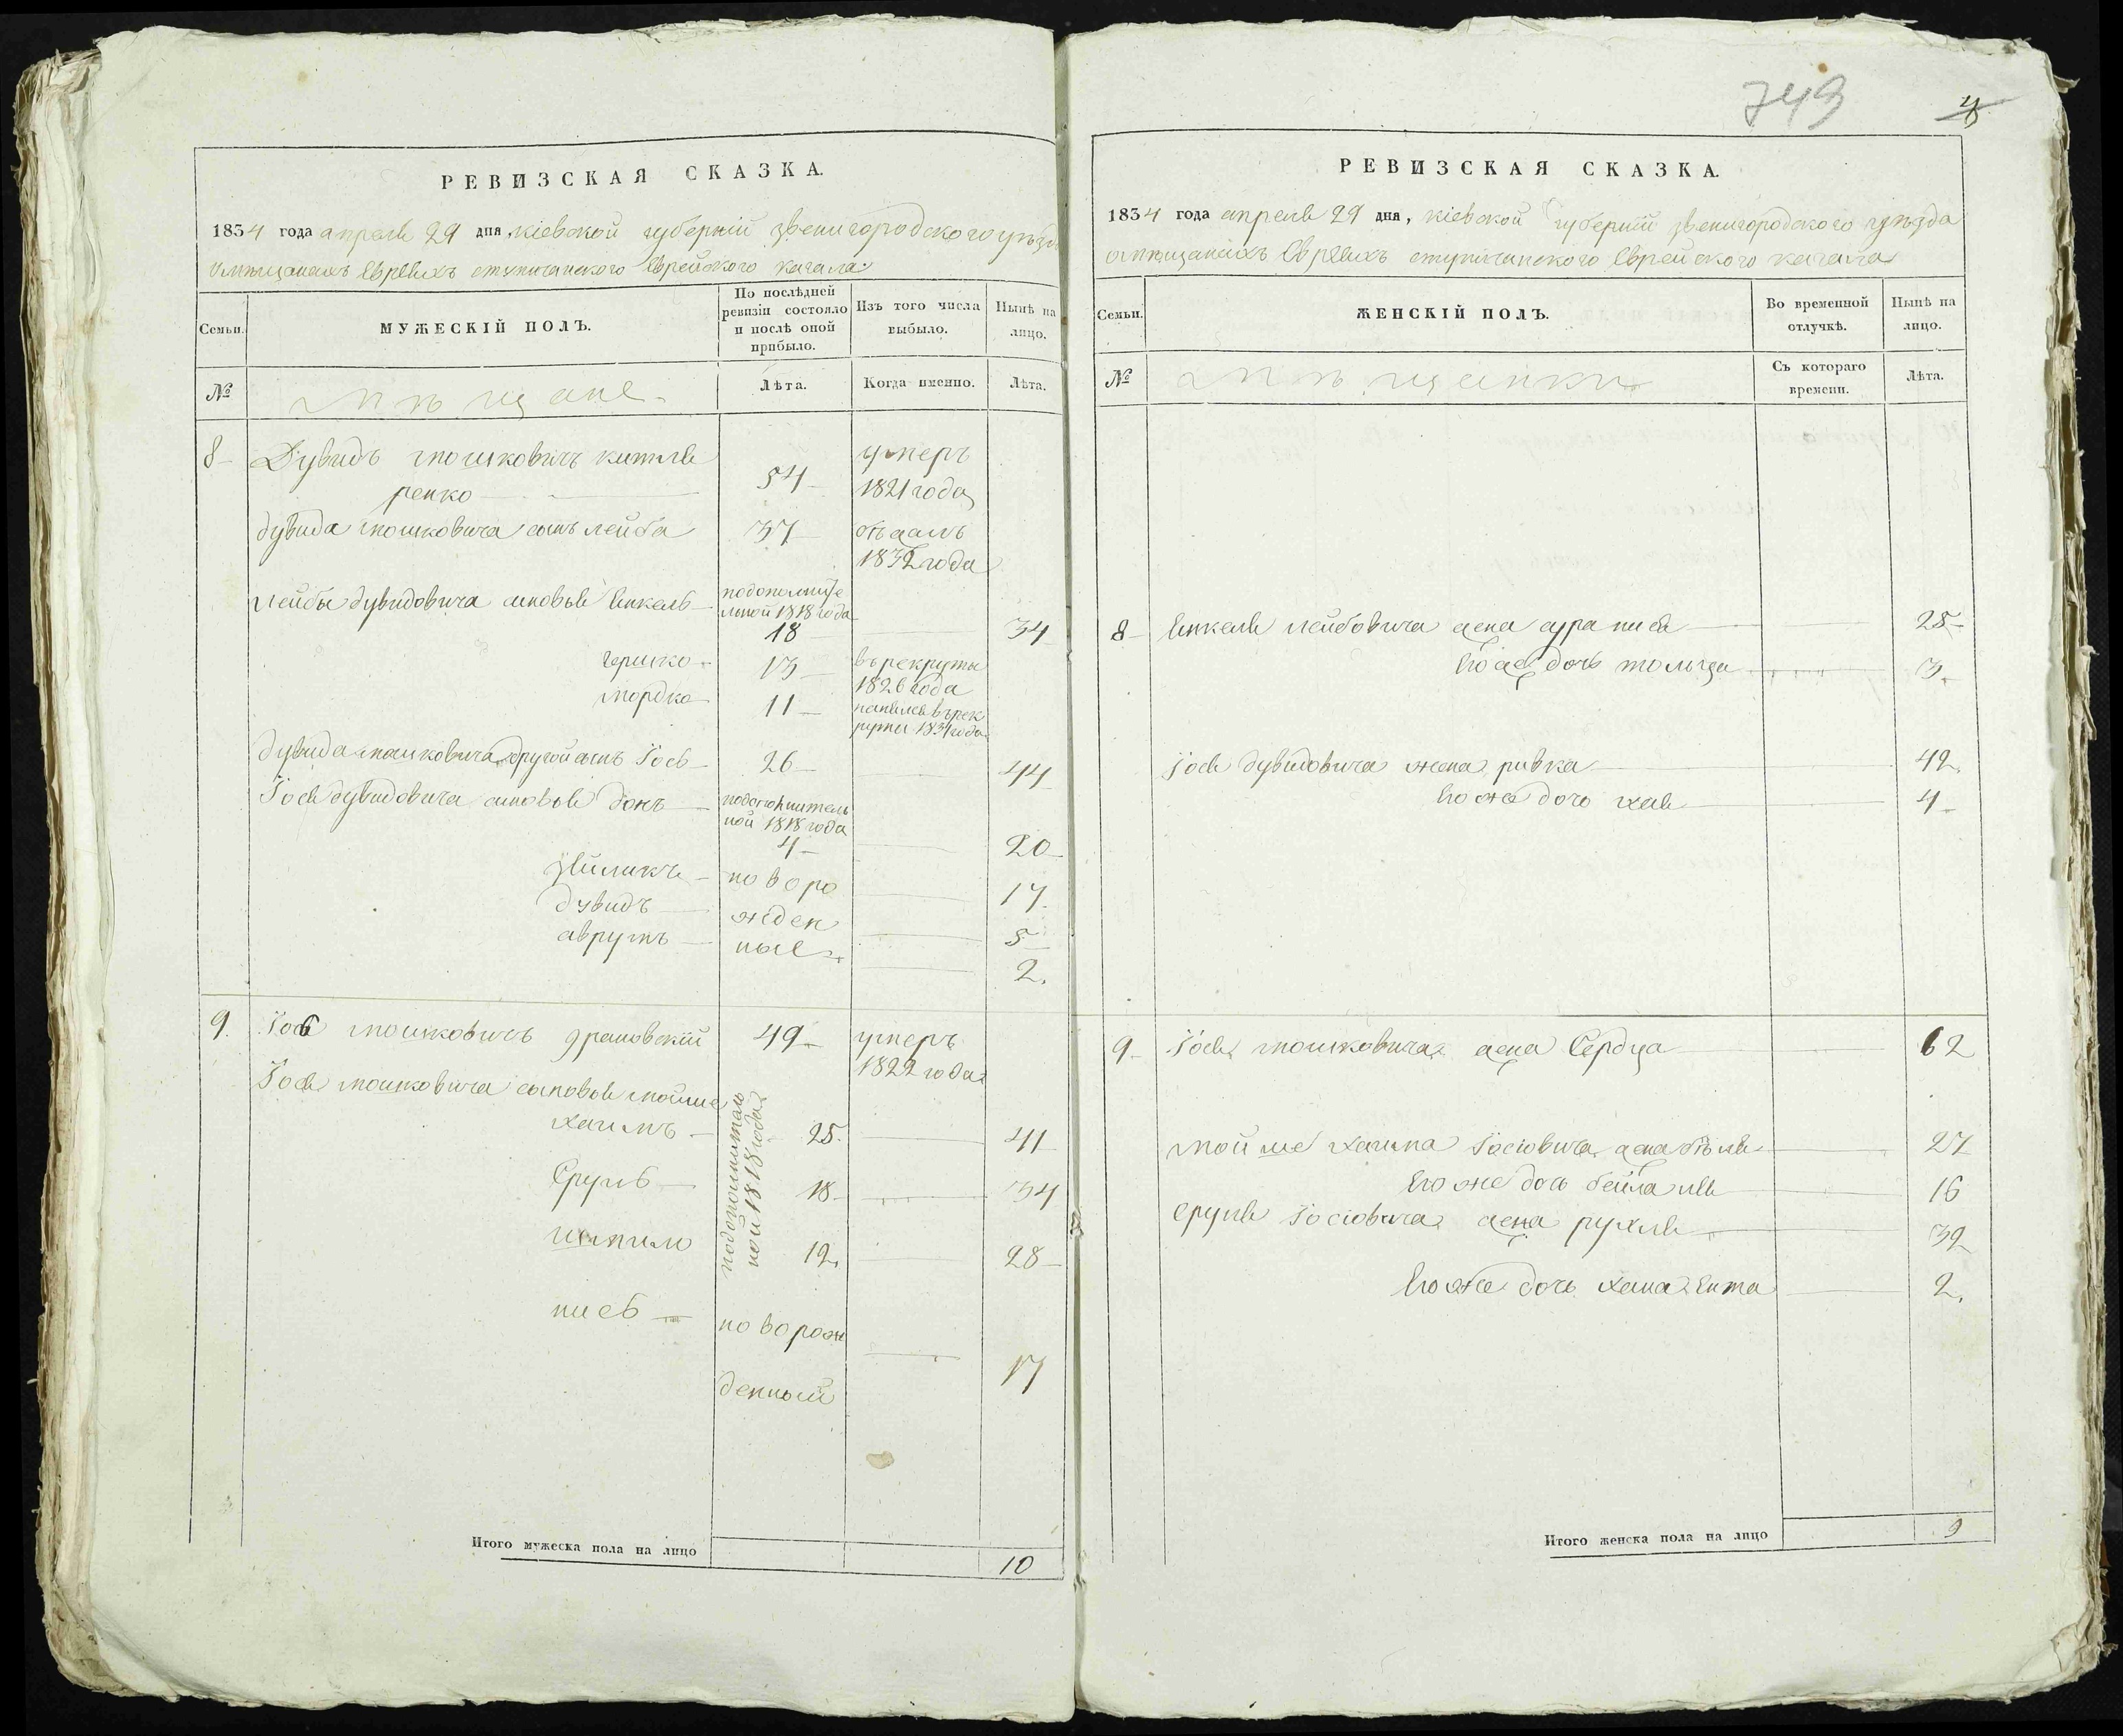 РЕВИЗСКАЯ СКАЗКА.
1834 года апреля 29 дня, кіевской губерній звенигородского уѣзда
омѣщанахъ Евреяхъ Еврейского кагала
Семьи.
МУЖЕСКІЙ ПОЛЪ.
По послѣдней ревизіи состояло и послѣ оной прибыло.
Изъ того числа выбыло.
Нынѣ на лицо.
№
мѣщане
Лѣта.
Когда именно.
Лѣта.
8 Дувидъ мошковичъ
ренко 54 умеръ 1821 года
дувида мошковича сынъ лейба 37 1832 года
лейбы дувидовича сыновья Янкель подополнительной 1818 года 18 34
гершко 13 въ рекруты 1826 года
мордко 11 рекруты 1831 года
дувида мошковича другой сынъ Іось 26 44
Іося дувидовича сыновья подополнительной 1818 года 4 20
новорожденные 17
дувидъ 5
аврумъ 2.
9. Іось мошковичъ 49 умеръ 1822 года
Іося мошковича сыновья мойше
хаимъ подополнительной 1818 года 25. 41
Сруль 18 34
12. 28
новорожденный 17
Итого мужеска пола на лицо 10
749
4
РЕВИЗСКАЯ СКАЗКА.
1834 года апреля 29 дня, кіевской губерній звенигородского уѣзда
омѣщанахъ Евреяхъ Еврейского кагала
Семьи.
ЖЕНСКІЙ ПОЛЪ.
Во временной отлучкѣ.
Нынѣ на лицо.
№
мѣщанки
Съ котораго времени.
Лѣта.
8 Янкеля лейбовича жена 25
Его же дочь 3.
Іося дувидовича жена ривка 42
Его же дочь хая 4
9 Іося мошковича жена 62
мойше хаима Іосіовича жена 27
Его же дочь бейла 16
Сруля Іосіовича жена рухля 32
Его же дочь хана Ента 2.
Итого женска пола на лицо 9